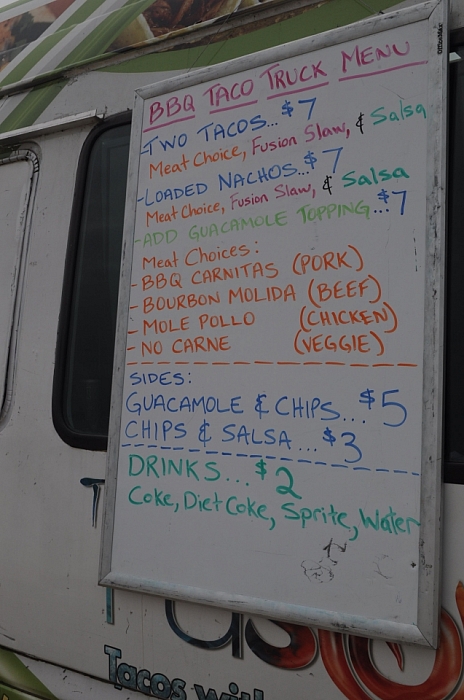 OfficeMax
BBQ TACO TRUCK MENU
-TWO TACOS...$7
Meat Choice, Fusion Slaw, & Salsa
-LOADED NACHOS...$7
Meat Choice, Fusion Slaw, & Salsa
-ADD GUACAMOLE TOPPING...$7
Meat Choices:
- BBQ CARNITAS (PORK)
- BOURBON MOLIDA (BEEF)
- MOLE POLLO (CHICKEN)
- NO CARNE (VEGGIE)
SIDES:
GUACAMOLE & CHIPS...$5
CHIPS & SALSA...$3
DRINKS...$2
Coke, Diet Coke, Sprite, Water
Tacos with